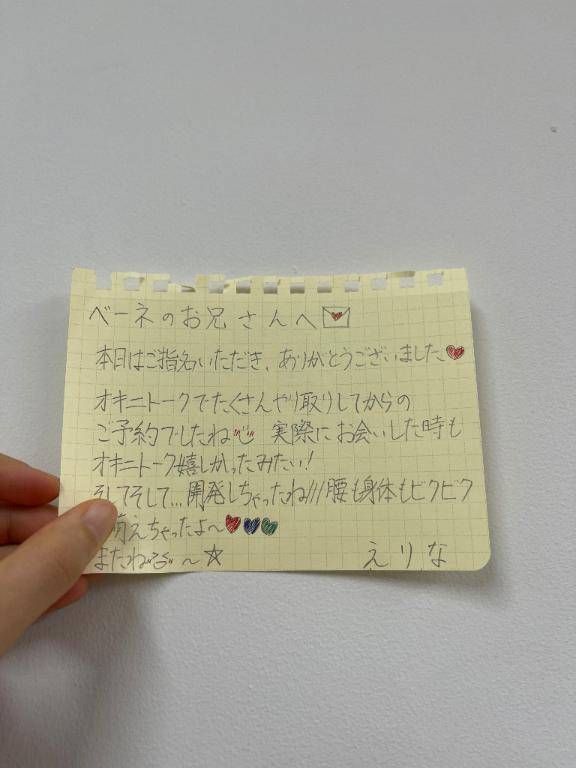 ベーネのお兄さんへ
本日はご指名いただき、ありがとうございました
オキニトークでたくさんやり取りしてからの
ご予約でしたね 実際にお会いした時も
オキニトーク嬉しかったみたい!
そしてそして...開発しちゃったね///腰も身体もビクビク
萌えちゃったよ〜
またね 〜☆ えりな